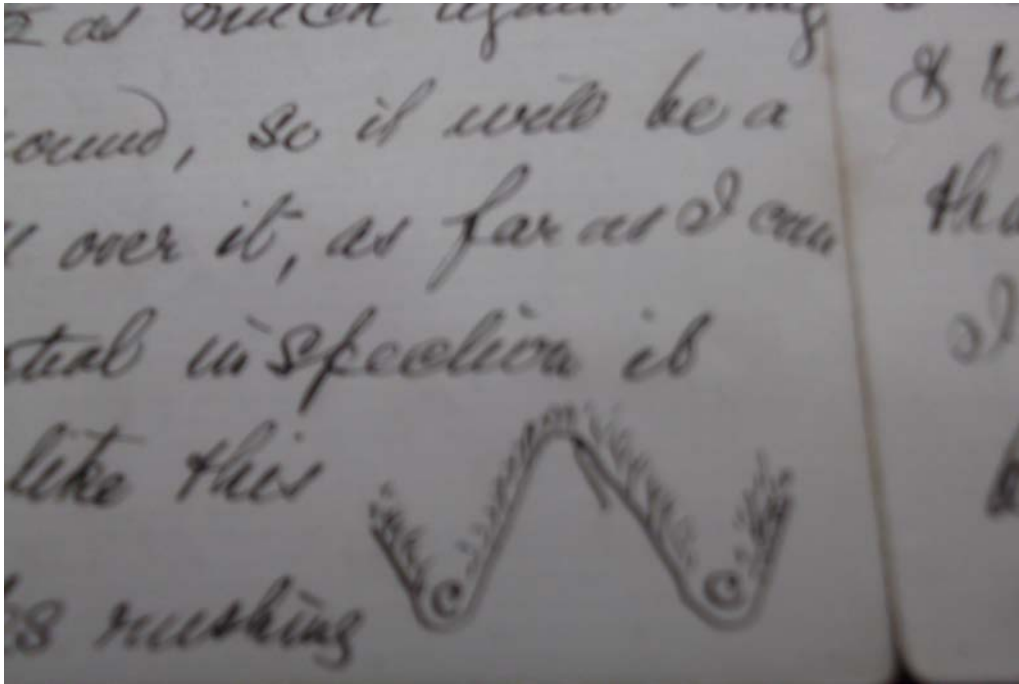 as much again being
ound, so it will be a
over it, as far as I can
tial inspection it
like this
rushing
&
tha
I